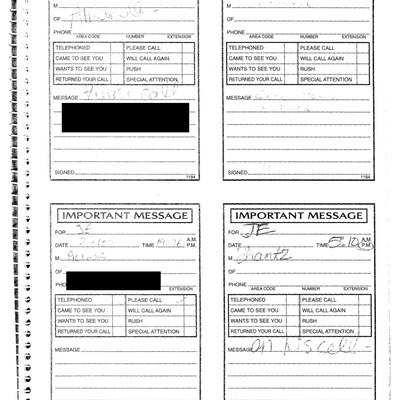 M
OF
PHONE
AREA CODE NUMBER EXTENSION
TELEPHONED PLEASE CALL
CAME TO SEE YOU WILL CALL AGAIN
WANTS TO SEE YOU RUSH
RETURNED YOUR CALL SPECIAL ATTENTION
MESSAGE
SIGNED
1184
M
OF
PHONE
AREA CODE NUMBER EXTENSION
TELEPHONED PLEASE CALL
CAME TO SEE YOU WILL CALL AGAIN
WANTS TO SEE YOU RUSH
RETURNED YOUR CALL SPECIAL ATTENTION
MESSAGE
SIGNED
1184
IMPORTANT MESSAGE
FOR JE
DATE TIME A.M. P.M.
M
OF
PHO
EXTENSION
TELEPHONED PLEASE CALL
CAME TO SEE YOU WILL CALL AGAIN
WANTS TO SEE YOU RUSH
RETURNED YOUR CALL SPECIAL ATTENTION
MESSAGE
IMPORTANT MESSAGE
FOR JE
DATE TIME 5:10 A.M. P.M.
M Shantz
OF
PHONE
AREA CODE NUMBER EXTENSION
TELEPHONED PLEASE CALL
CAME TO SEE YOU WILL CALL AGAIN
WANTS TO SEE YOU RUSH
RETURNED YOUR CALL SPECIAL ATTENTION
MESSAGE cell